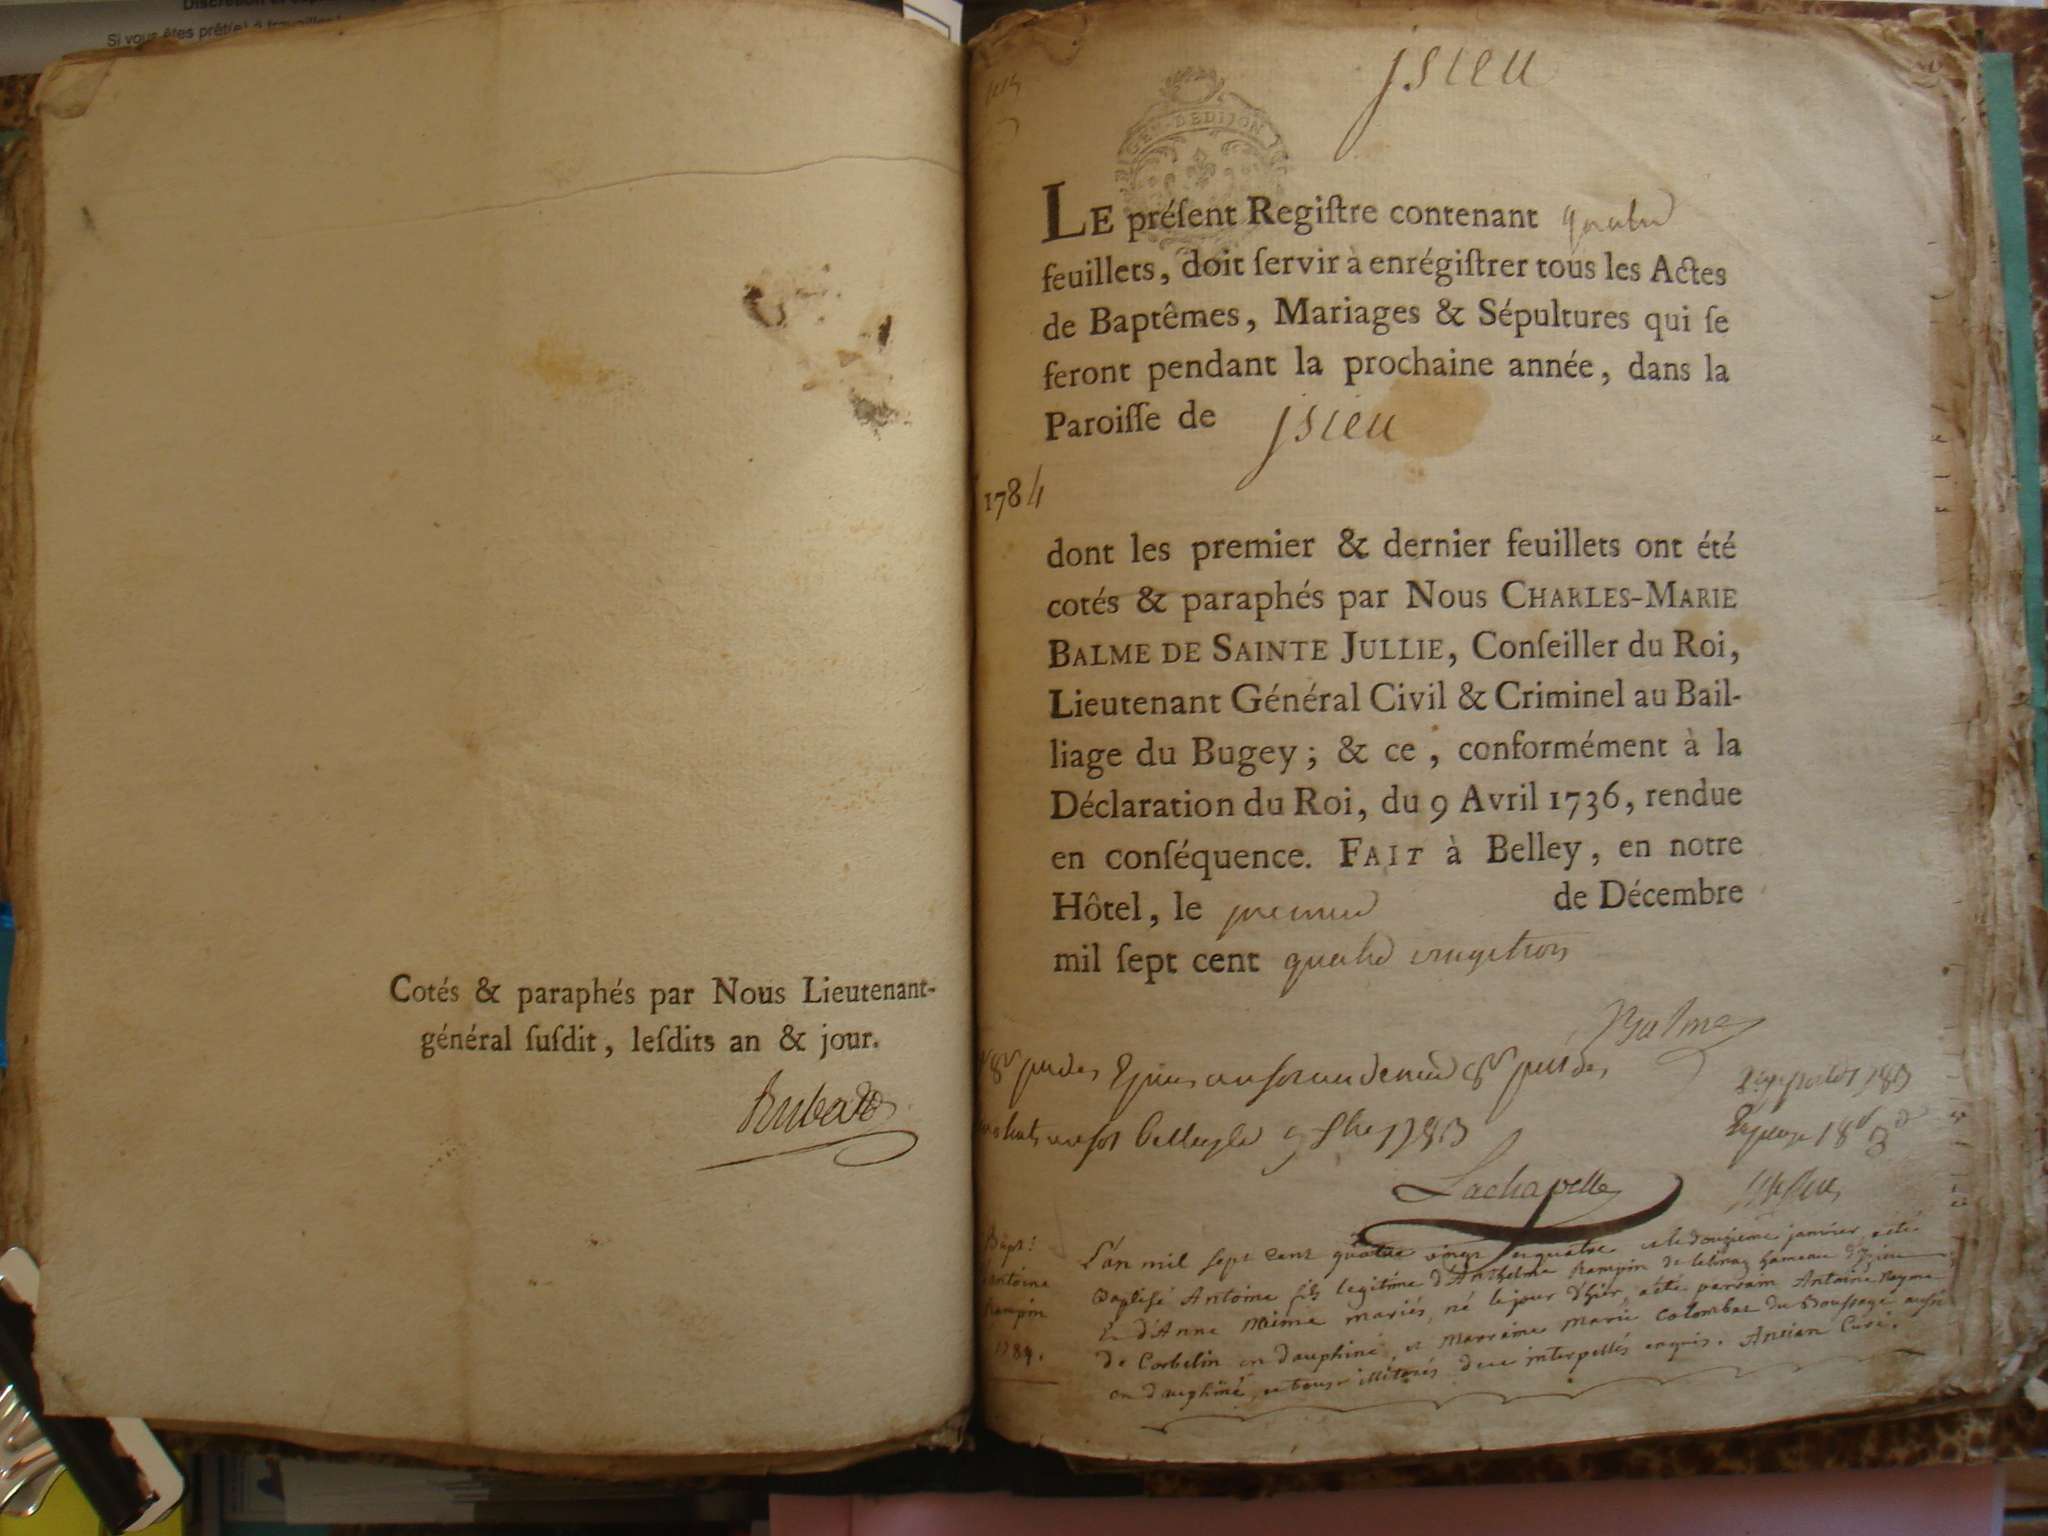 Si vous êtes prêt(e) à travailler
Cotés & paraphés par Nous Lieutenant-
général ſuſdit, leſdits an & jour.
jsieu
GEN·DEDIJON
LE préſent Regiſtre contenant quatre
feuillets, doit ſervir à enrégiſtrer tous les Actes
de Baptêmes, Mariages & Sépultures qui ſe
feront pendant la prochaine année, dans la
Paroiſſe de jsieu
1784
dont les premier & dernier feuillets ont été
cotés & paraphés par Nous CHARLES-MARIE
BALME DE SAINTE JULLIE, Conſeiller du Roi,
Lieutenant Général Civil & Criminel au Bail-
liage du Bugey ; & ce , conformément à la
Déclaration du Roi, du 9 Avril 1736, rendue
en conſéquence. FAIT à Belley, en notre
Hôtel, le premier de Décembre
mil ſept cent quatre vingt trois
Balme
Lachapelle
Bapt:
antoine
Rampin
1784.
L'an mil sept cent quatre vingt et quatre et le douzieme janvier, a été
Baptisé Antoine fils legitime d'Anthelme Rampin de hameau
& d'Anne mariés, né le jour d'hier, a été parrain Antoine
de Corbelin en dauphiné, et Marraine Marie Colombat du aussi
en dauphiné, et tous illiterés de ce interpellés enquis. Ancian Curé.